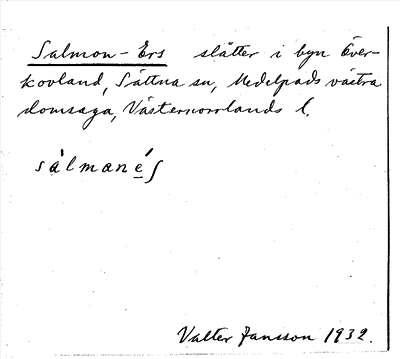 Salmon-Ers slåtter i byn Över-
kovland, Sättna sn, Medelpads västra
domsaga, Västernorrlands l.
sálmanés
Valter Jansson 1932.